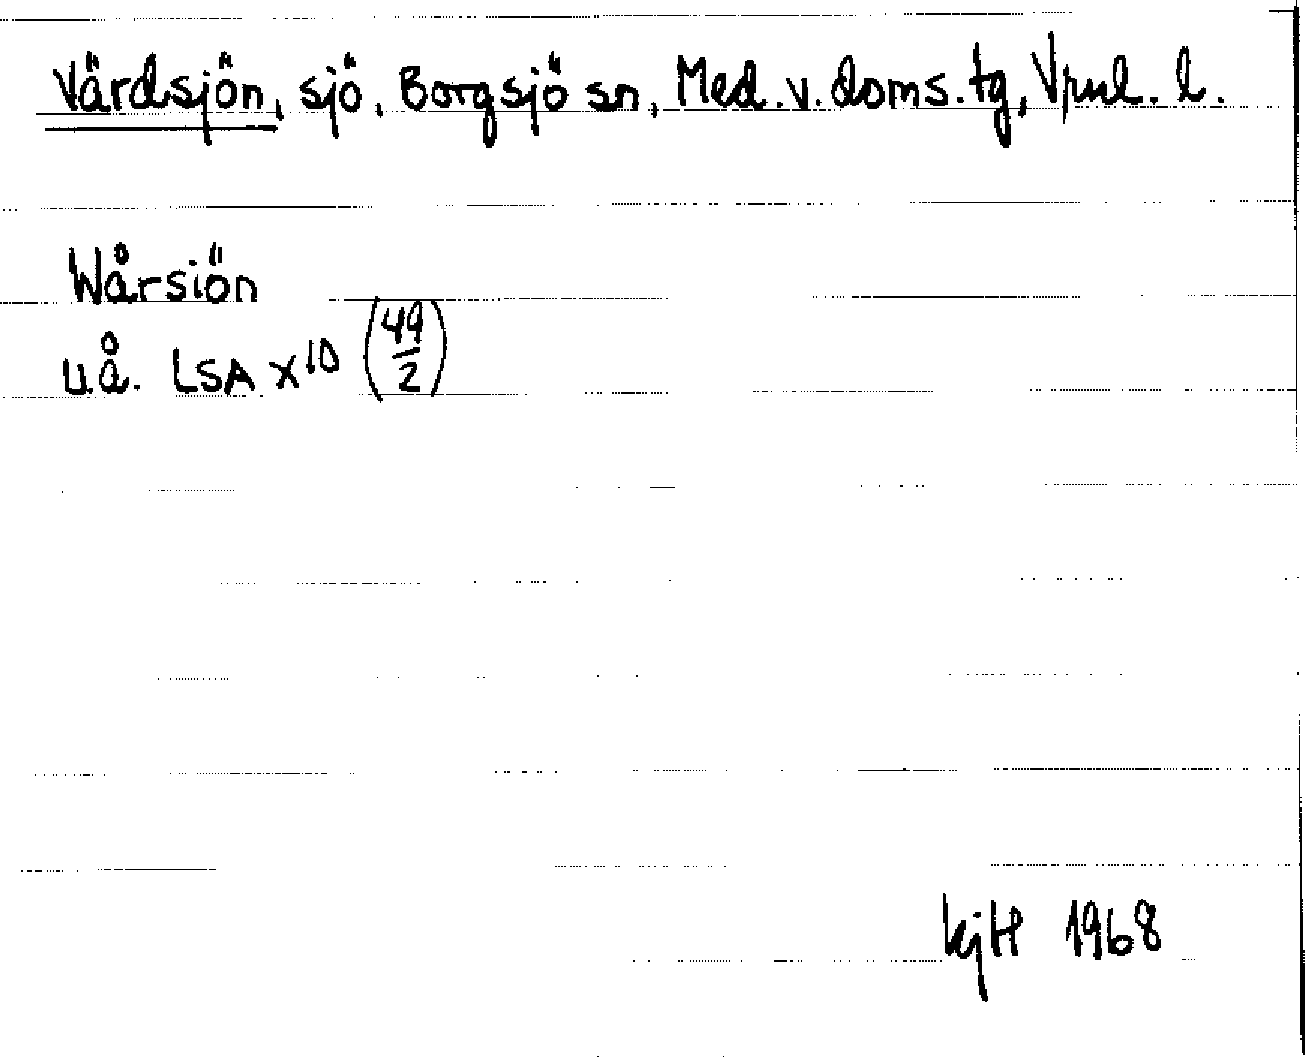 Värdsjön, sjö, Borgsjö sn, Med. v. doms. tg, Vrnl. l.
Wårsiön
u.å. LSA X¹⁰ (49/2)
KjH 1968